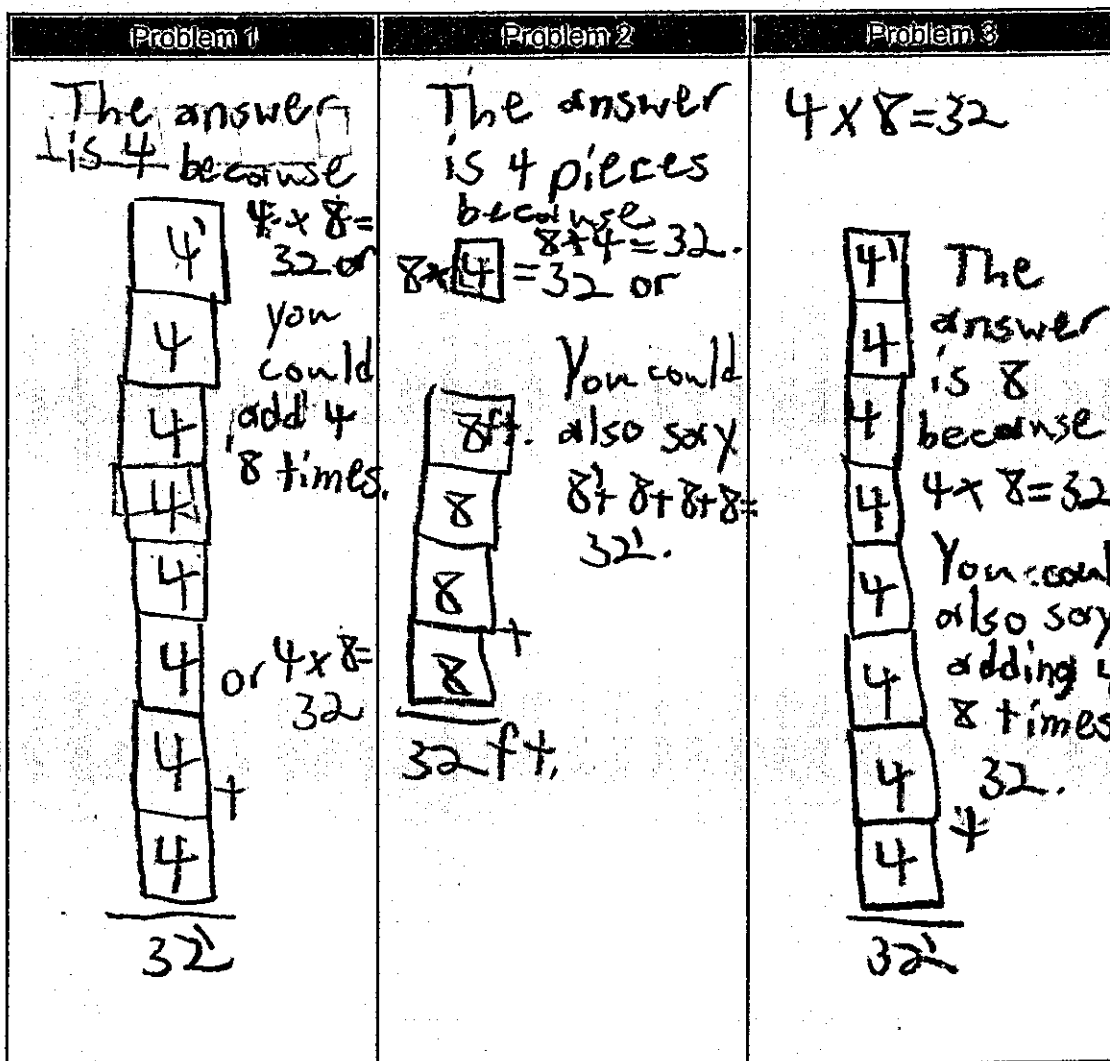 Problem 1
The answer
is 4 because
4 x 8 =
32 or
you
could
add 4
8 times.
or 4 x 8 =
32
4'
4
4
4
4
4
4
+
4
32'
Problem 2
The answer
is 4 pieces
because
8 x 4 = 32.
8 x 4 = 32 or
You could
also say
8' + 8 + 8 + 8 =
32'.
8ft.
8
8
+
8
32 ft.
Problem 3
4 x 8 = 32
The
answer
is 8
because
4 x 8 = 32
also say
adding 4
8 times
32.
4'
4
4
4
4
4
4
+
4
32'